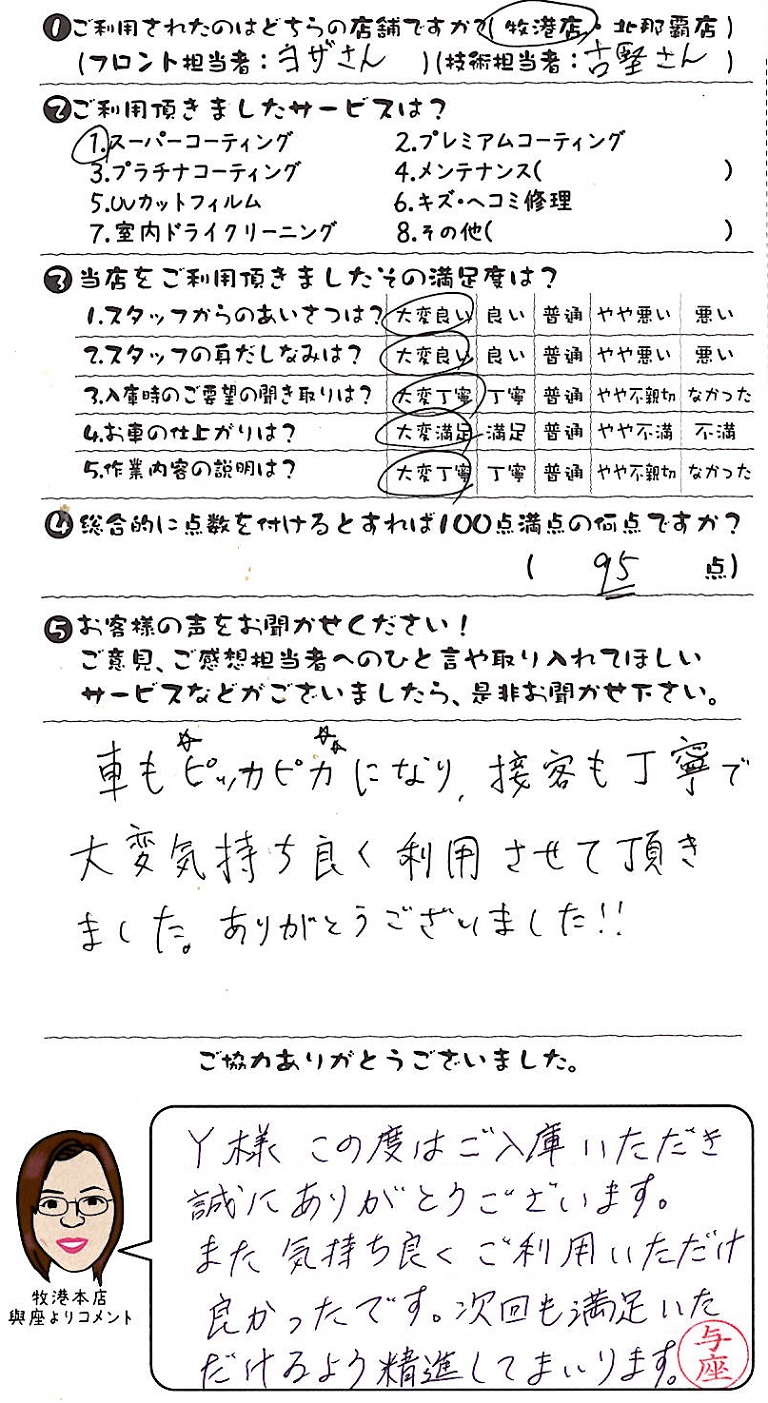 ❶ご利用されたのはどちらの店舗ですか?(牧港店・北那覇店)
(フロント担当者:ヨザさん)(技術担当者:古堅さん)
❷ご利用頂きましたサービスは?
1.スーパーコーティング 2.プレミアムコーティング
3.プラチナコーティング 4.メンテナンス( )
5.UVカットフィルム 6.キズ・ヘコミ修理
7.室内ドライクリーニング 8.その他( )
❸当店をご利用頂きましたその満足度は?
1.スタッフからのあいさつは? 大変良い 良い 普通 やや悪い 悪い
2.スタッフの身だしなみは? 大変良い 良い 普通 やや悪い 悪い
3.入庫時のご要望の聞き取りは? 大変丁寧 丁寧 普通 やや不親切 なかった
4.お車の仕上がりは? 大変満足 満足 普通 やや不満 不満
5.作業内容の説明は? 大変丁寧 丁寧 普通 やや不親切 なかった
❹総合的に点数を付けるとすれば100点満点の何点ですか?
( 95 点)
❺お客様の声をお聞かせください!
ご意見、ご感想担当者へのひと言や取り入れてほしい
サービスなどがございましたら、是非お聞かせ下さい。
車もピッカピカになり、接客も丁寧で
大変気持ち良く利用させて頂き
ました。ありがとうございました!!
ご協力ありがとうございました。
Y様 この度はご入庫いただき
誠にありがとうございます。
また気持ち良くご利用いただけ
良かったです。次回も満足いた
だけるよう精進してまいります。
与座
牧港本店
與座よりコメント